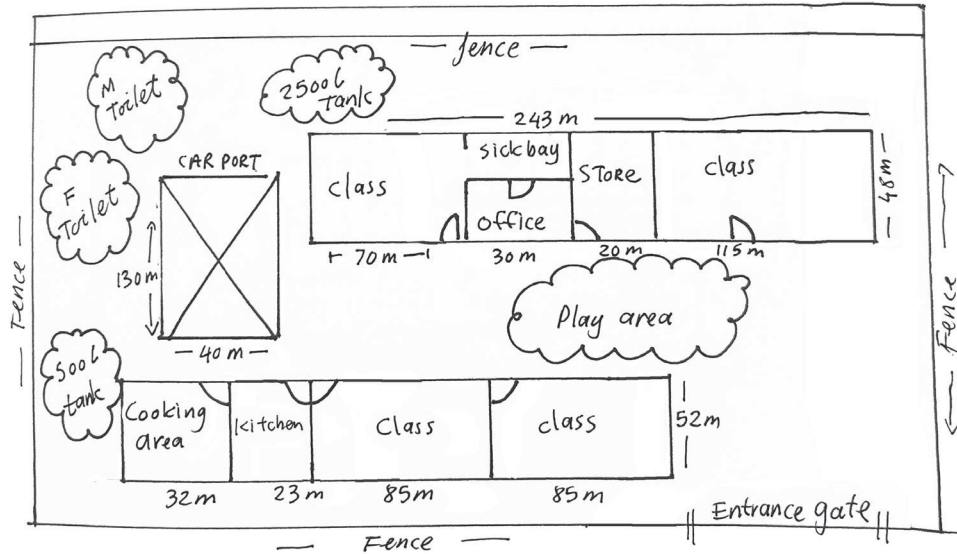 fence
M
Toilet
2500l
Tank
243 m
CAR PORT
Class
sickbay
STORE
class
48m
F
Toilet
office
70m
30m
20m
115m
130m
Play area
Fence
Fence
40 m
500l
tank
Cooking
area
Kitchen
Class
class
52m
32m
23m
85m
85m
Entrance gate
Fence